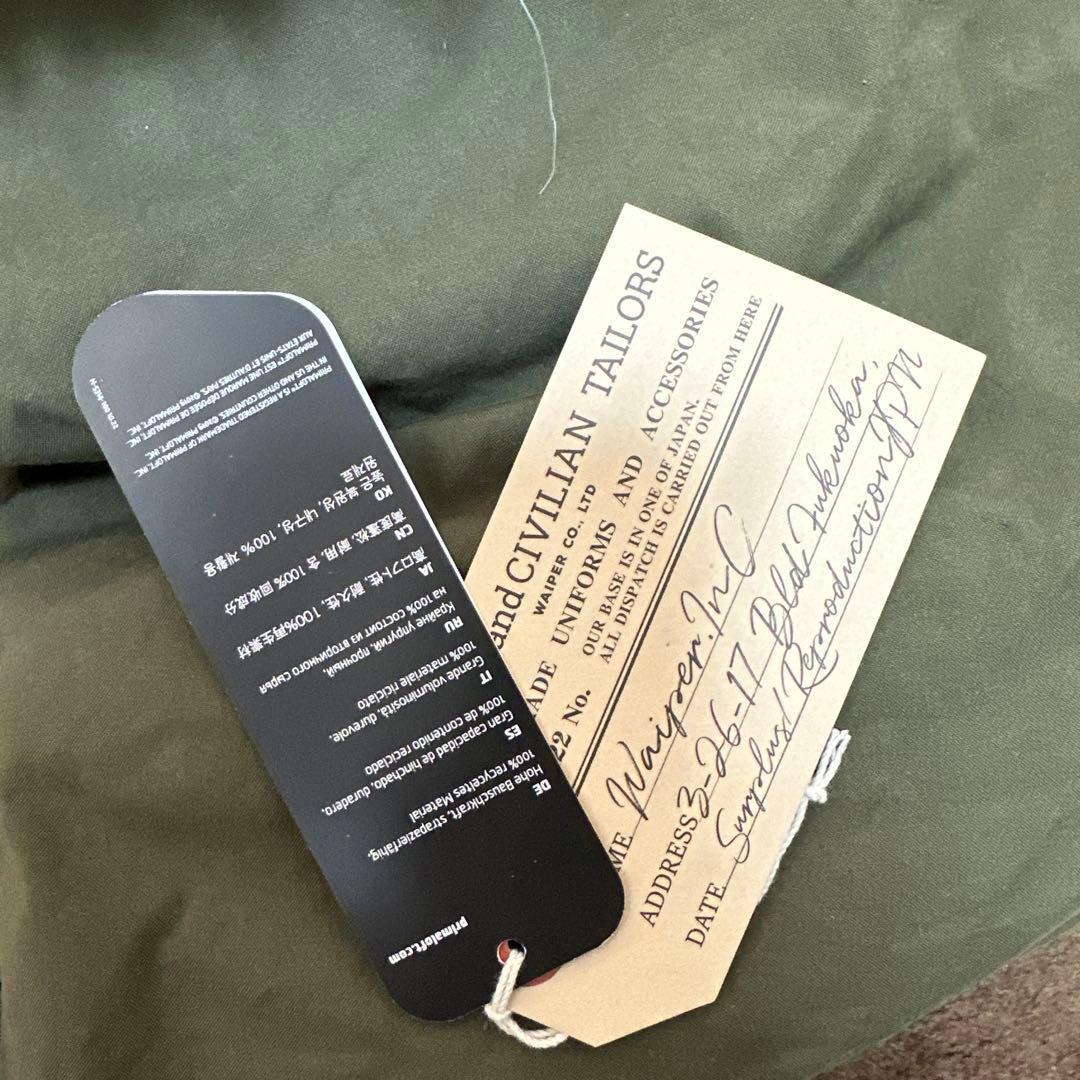 primaloft.com
DE
Hohe Bauschkraft, strapazierfähig,
100% recyceltes Material
ES
Gran capacidad de hinchado, duradero.
100% de contenido reciclado
IT
Grande voluminosità, durevole.
100% materiale riciclato
RU
Крайне упругий, прочный,
на 100% состоит из вторичного сырья
JA
高ロフト性, 耐久性, 100%再生素材
CN
高度蓬松, 耐用, 含 100% 回收成分
KO
높은 복원성, 내구성, 100% 재활용
원재료
PRIMALOFT® IS A REGISTERED TRADEMARK OF PRIMALOFT, INC.
IN THE US AND OTHER COUNTRIES. ©2019 PRIMALOFT, INC.
PRIMALOFT® EST UNE MARQUE DÉPOSÉE DE PRIMALOFT, INC.
AUX ÉTATS-UNIS ET D'AUTRES PAYS. ©2019 PRIMALOFT, INC.
and CIVILIAN TAILORS
WAIPER CO., LTD
ADE UNIFORMS AND ACCESSORIES
22 No. OUR BASE IS IN ONE OF JAPAN.
ALL DISPATCH IS CARRIED OUT FROM HERE
ME Waiper.InC
ADDRESS 3-26-17 Bld Fukuoka,
DATE Surplus/Reproduction JPN